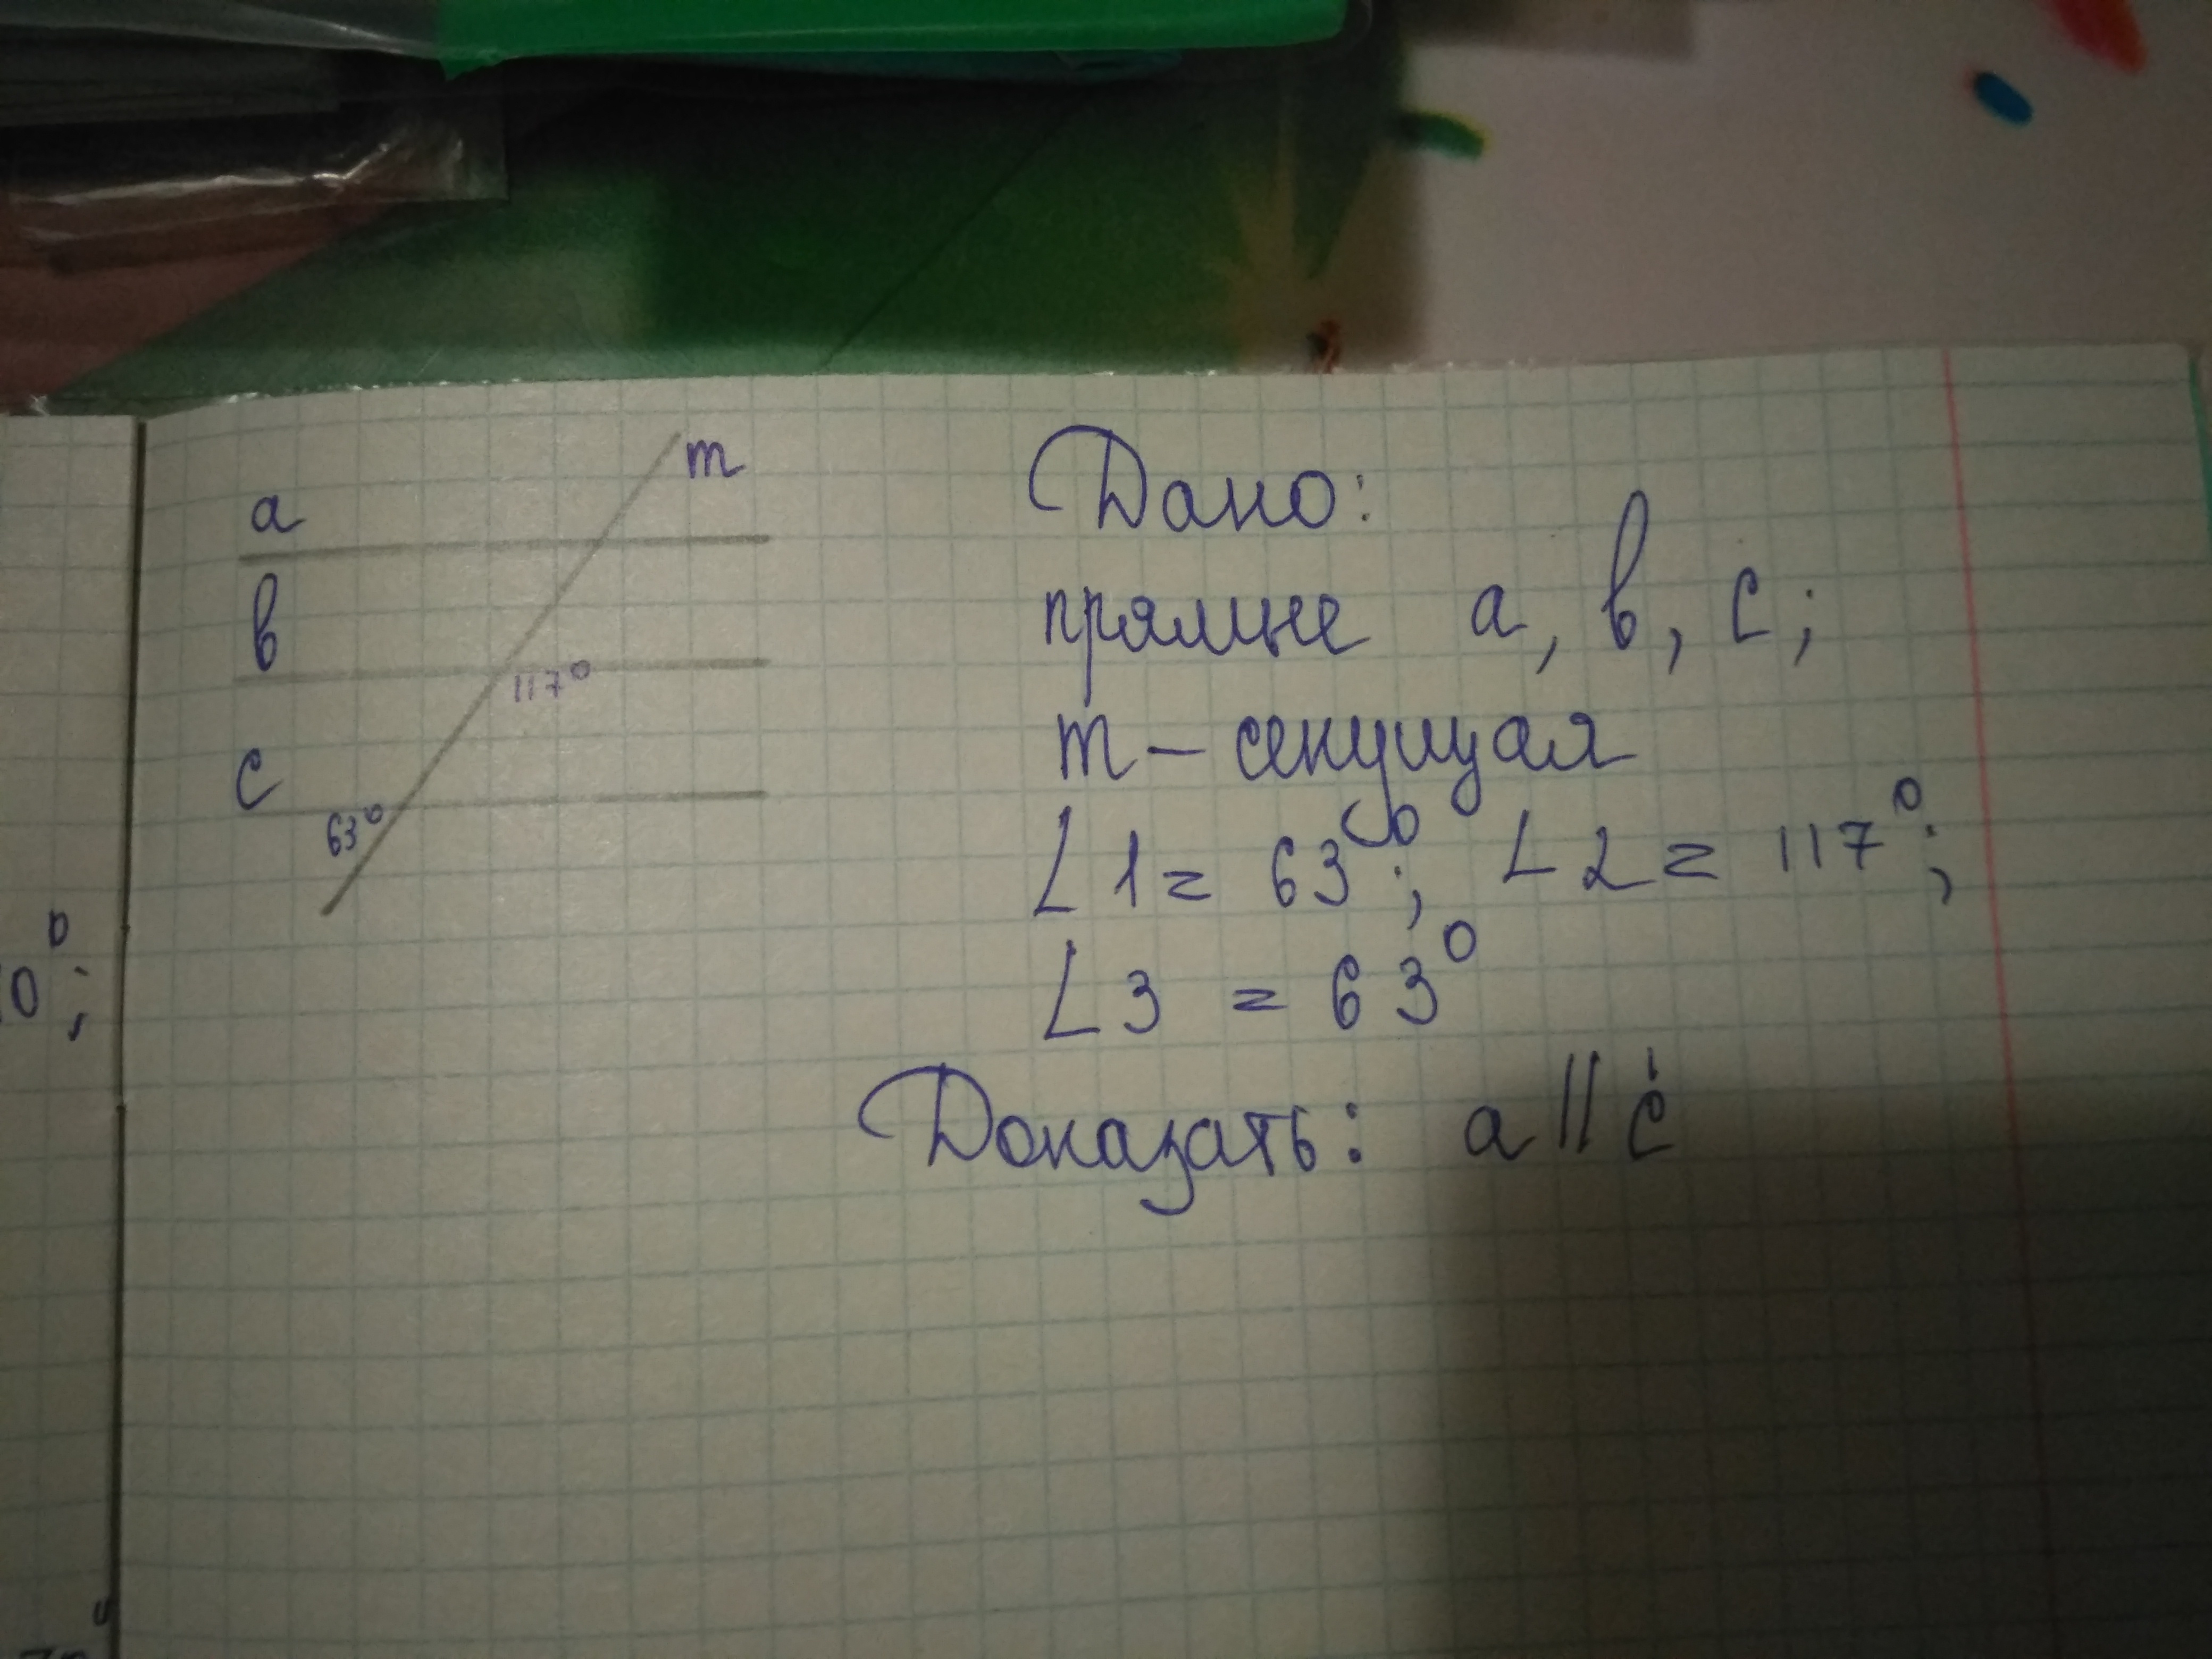 m
a
в
117°
c
63°
Дано:
прямые a, в, c;
m – секущая
∠1 = 63°; ∠2 = 117°;
∠3 = 63°
Доказать: a || c
0°;